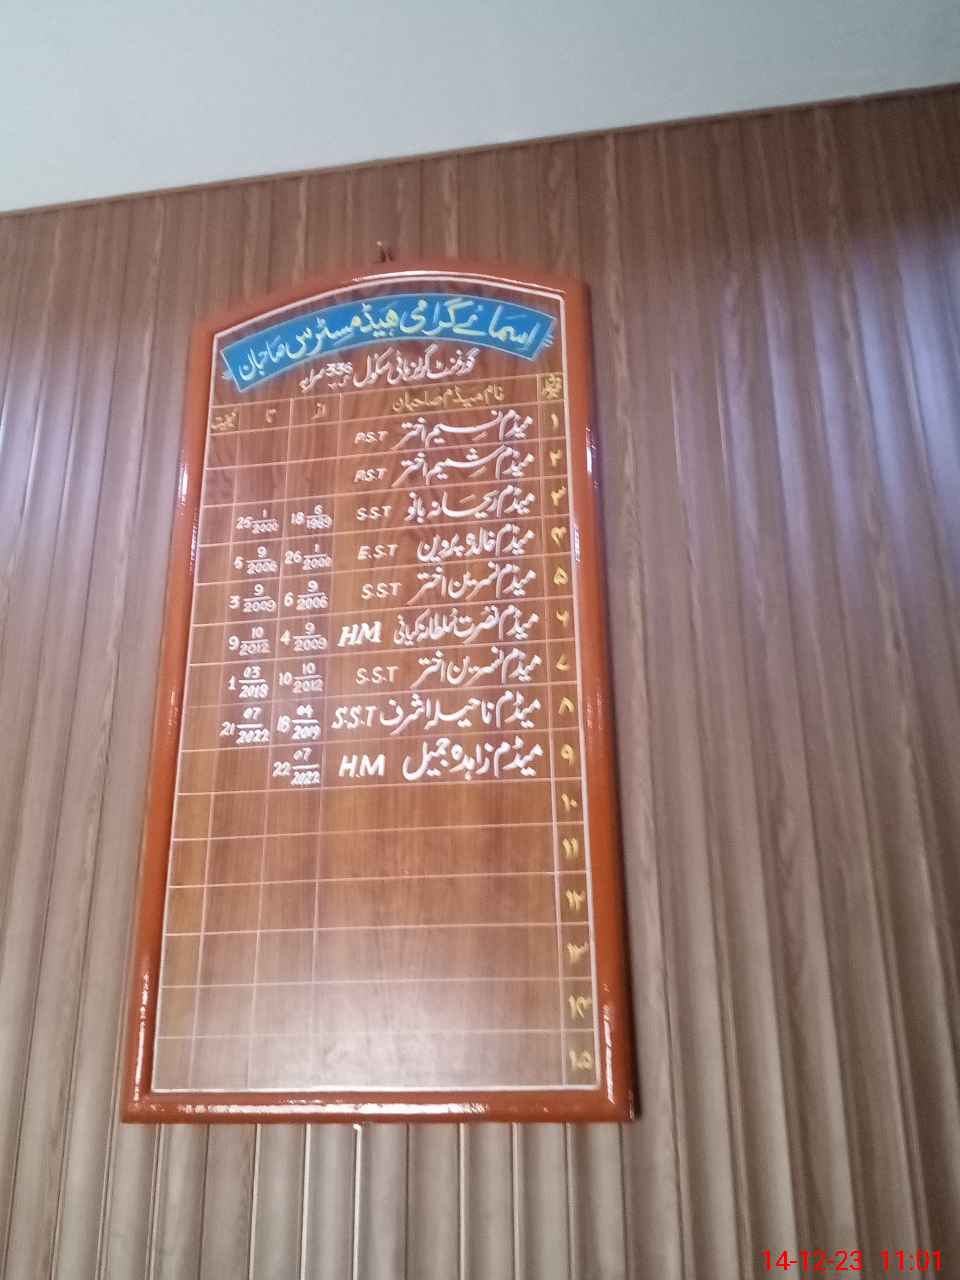 اسمائے گرامی ہیڈ مسٹرس صاحبان
گورنمنٹ گرلز ہائی سکول 336
نام میڈم صاحبان از تا
۱ میڈم نسیم اختر P.S.T
۲ میڈم شمیم اختر P.S.T
۳ میڈم ریحانہ بانو S.S.T 18 6/1989 25 1/2000
۴ میڈم خالدہ پروین E.S.T 26 1/2000 5 9/2006
۵ میڈم نسرین اختر S.S.T 6 9/2006 3 9/2009
۶ میڈم نصرت سلطانہ کیانی HM 4 9/2009 9 10/2012
۷ میڈم نسرین اختر S.S.T 10 10/2012 1 03/2018
۸ میڈم ناحیلہ اشرف S.S.T 18 04/2019 21 07/2022
۹ میڈم زاہدہ جمیل H.M 22 07/2022
۱۰
۱۱
۱۲
۱۳
۱۴
۱۵
14-12-23 11:01